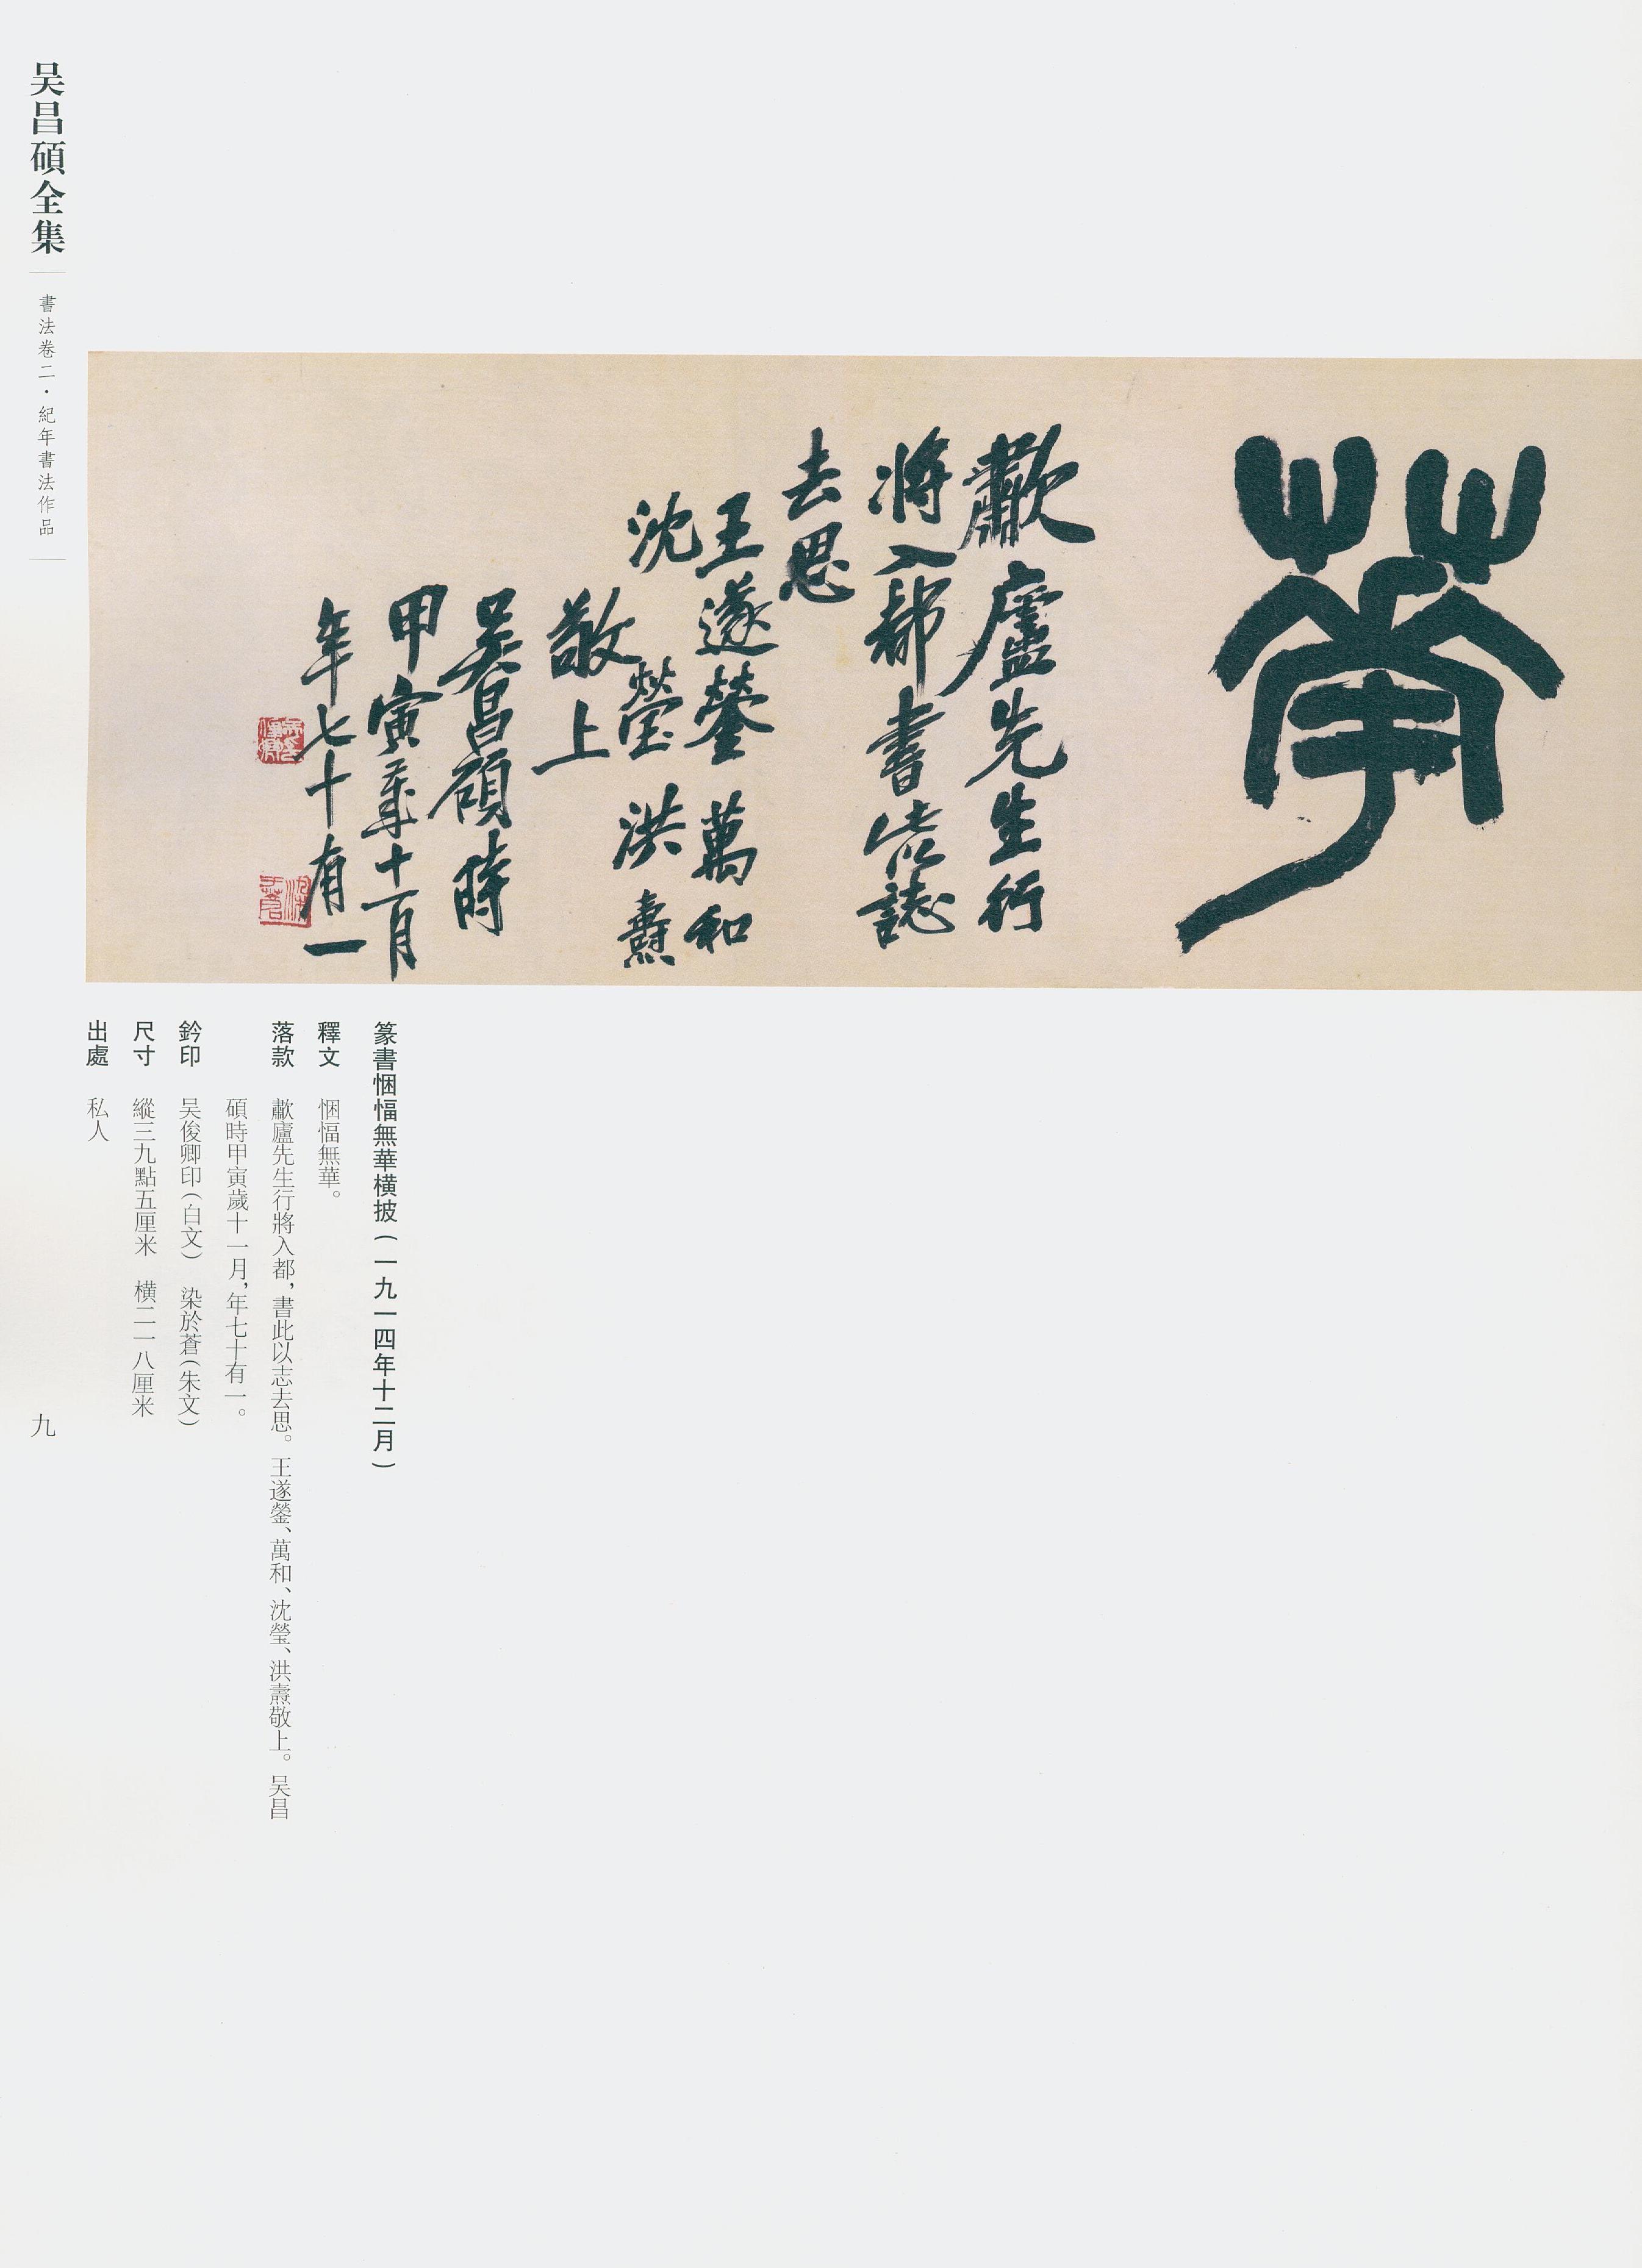 華
歗廬先生行
將入都書此以誌
去思
王遂鎣 萬和
沈瑩 洪燾
敬上
吴昌碩時
甲寅歲十一月
年七十有一
吴昌碩全集
書法卷二·紀年書法作品
篆書悃愊無華横披（一九一四年十二月）
釋文 悃愊無華。
落款 歗廬先生行將入都，書此以志去思。王遂鎣、萬和、沈瑩、洪燾敬上。吴昌
碩時甲寅歲十一月，年七十有一。
鈐印 吴俊卿印（白文） 染於蒼（朱文）
尺寸 縱三九點五厘米 横二一八厘米
出處 私人
九